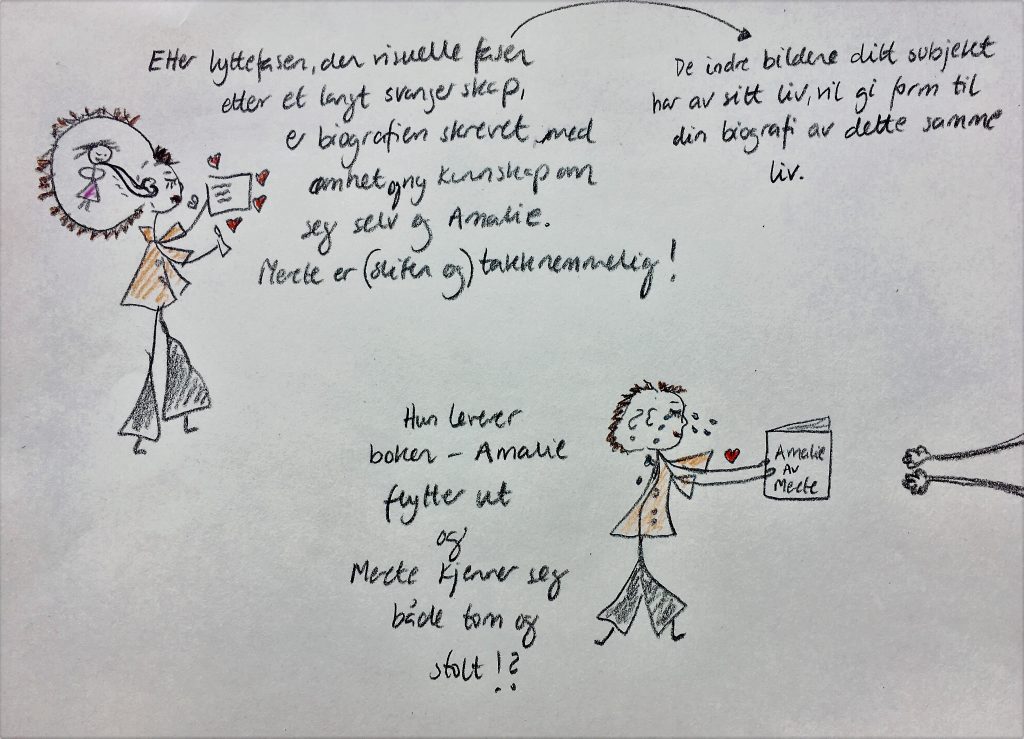 Etter lyttefasen, den visuelle fasen
etter et langt svangerskap,
er biografien skrevet, med
ømhet og ny kunnskap om
seg selv og Amalie.
Merete er (sliten og) takknemmelig!
De indre bildene ditt subjekt
har av sitt liv, vil gi form til
din biografi av dette samme
liv.
Hun leverer
boken - Amalie
flytter ut
og
Merete kjenner seg
både tom og
stolt!?
Amalie
Av
Merete